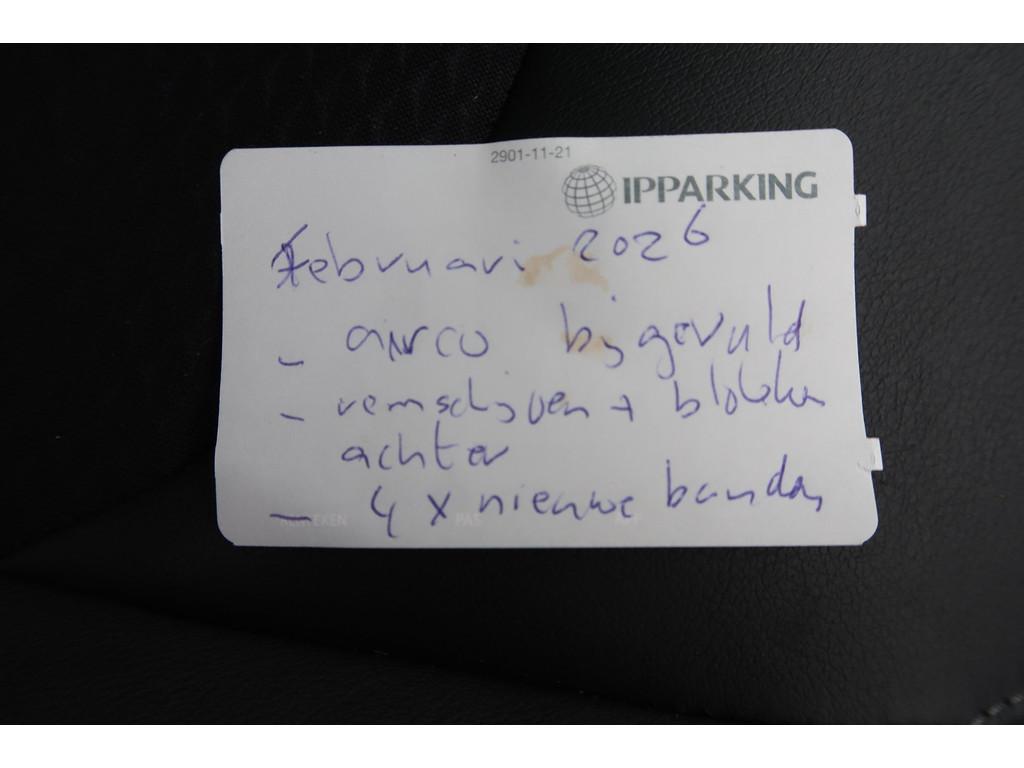 2901-11-21
IPPARKING
Februari 2026
- airco bijgevuld
- remschijven + blokken
achter
- 4 x nieuwe banden
PAS